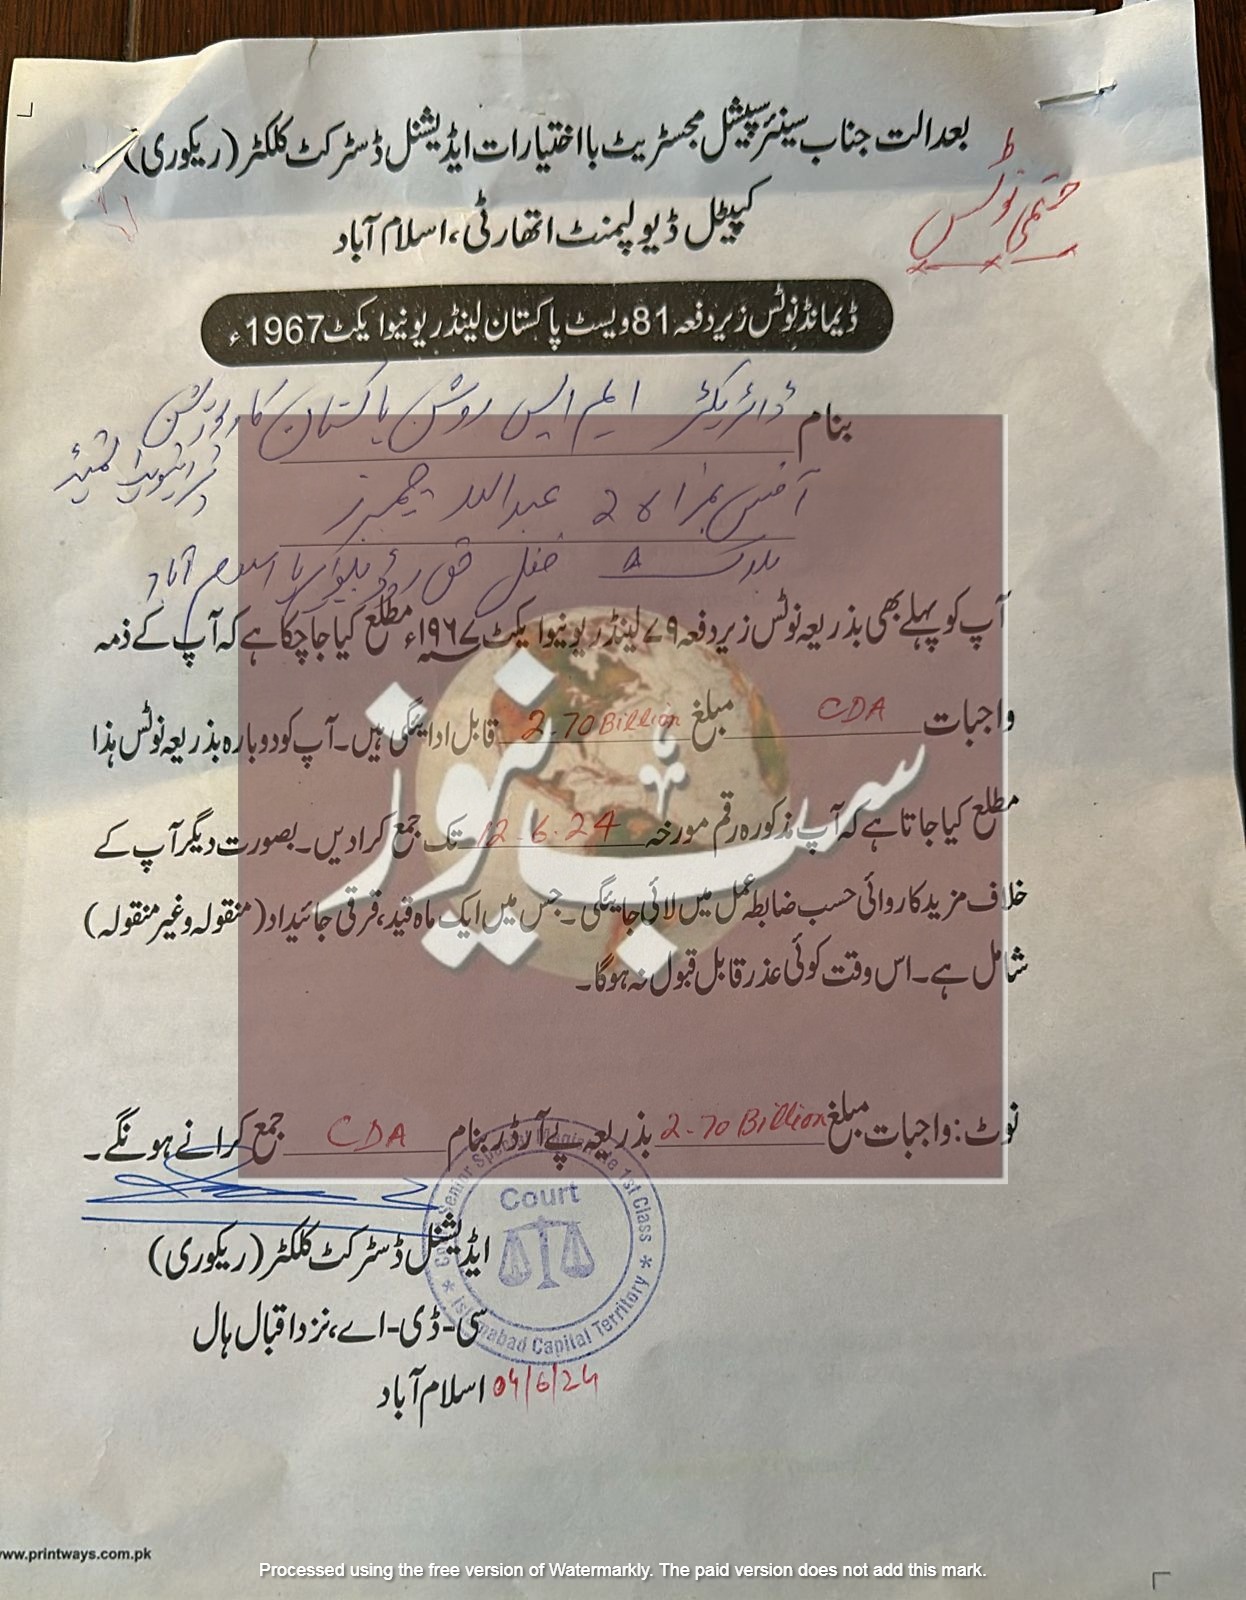 بعدالت جناب سینئر سپیشل مجسٹریٹ با اختیارات ایڈیشنل ڈسٹرکٹ کلکٹر (ریکوری)
کیپٹل ڈیولپمنٹ اتھارٹی، اسلام آباد
حتمی نوٹس
ڈیمانڈ نوٹس زیر دفعہ 81 ویسٹ پاکستان لینڈ ریونیو ایکٹ 1967ء
بنام ڈائریکٹر ایم ایس روشن پاکستان کارپوریشن
پرائیویٹ لمیٹڈ
آفس نمبر عبداللہ چیمبرز
بلاک A فضل حق روڈ بلیو ایریا اسلام آباد
آپ کو پہلے بھی بذریعہ نوٹس زیر دفعہ ۷۹ لینڈ ریونیو ایکٹ ۱۹۶۷ء مطلع کیا جا چکا ہے کہ آپ کے ذمہ
واجبات CDA مبلغ 2.70 Billion قابل ادائیگی ہیں۔ آپ کو دوبارہ بذریعہ نوٹس ہذا
مطلع کیا جاتا ہے کہ آپ مذکورہ رقم مورخہ 12.6.24 تک جمع کرا دیں۔ بصورت دیگر آپ کے
خلاف مزید کاروائی حسب ضابطہ عمل میں لائی جائیگی۔ جس میں ایک ماہ قید، قرقی جائیداد (منقولہ و غیر منقولہ)
شامل ہے۔ اس وقت کوئی عذر قابل قبول نہ ہوگا۔
سب نیوز
نوٹ: واجبات مبلغ 2.70 Billion بذریعہ پے آرڈر بنام CDA جمع کرانے ہونگے۔
Senior Special Magistrate 1st Class
Court
Islamabad Capital Territory
ایڈیشنل ڈسٹرکٹ کلکٹر (ریکوری)
سی-ڈی-اے، نزد اقبال ہال
اسلام آباد 04/6/24
www.printways.com.pk
Processed using the free version of Watermarkly. The paid version does not add this mark.